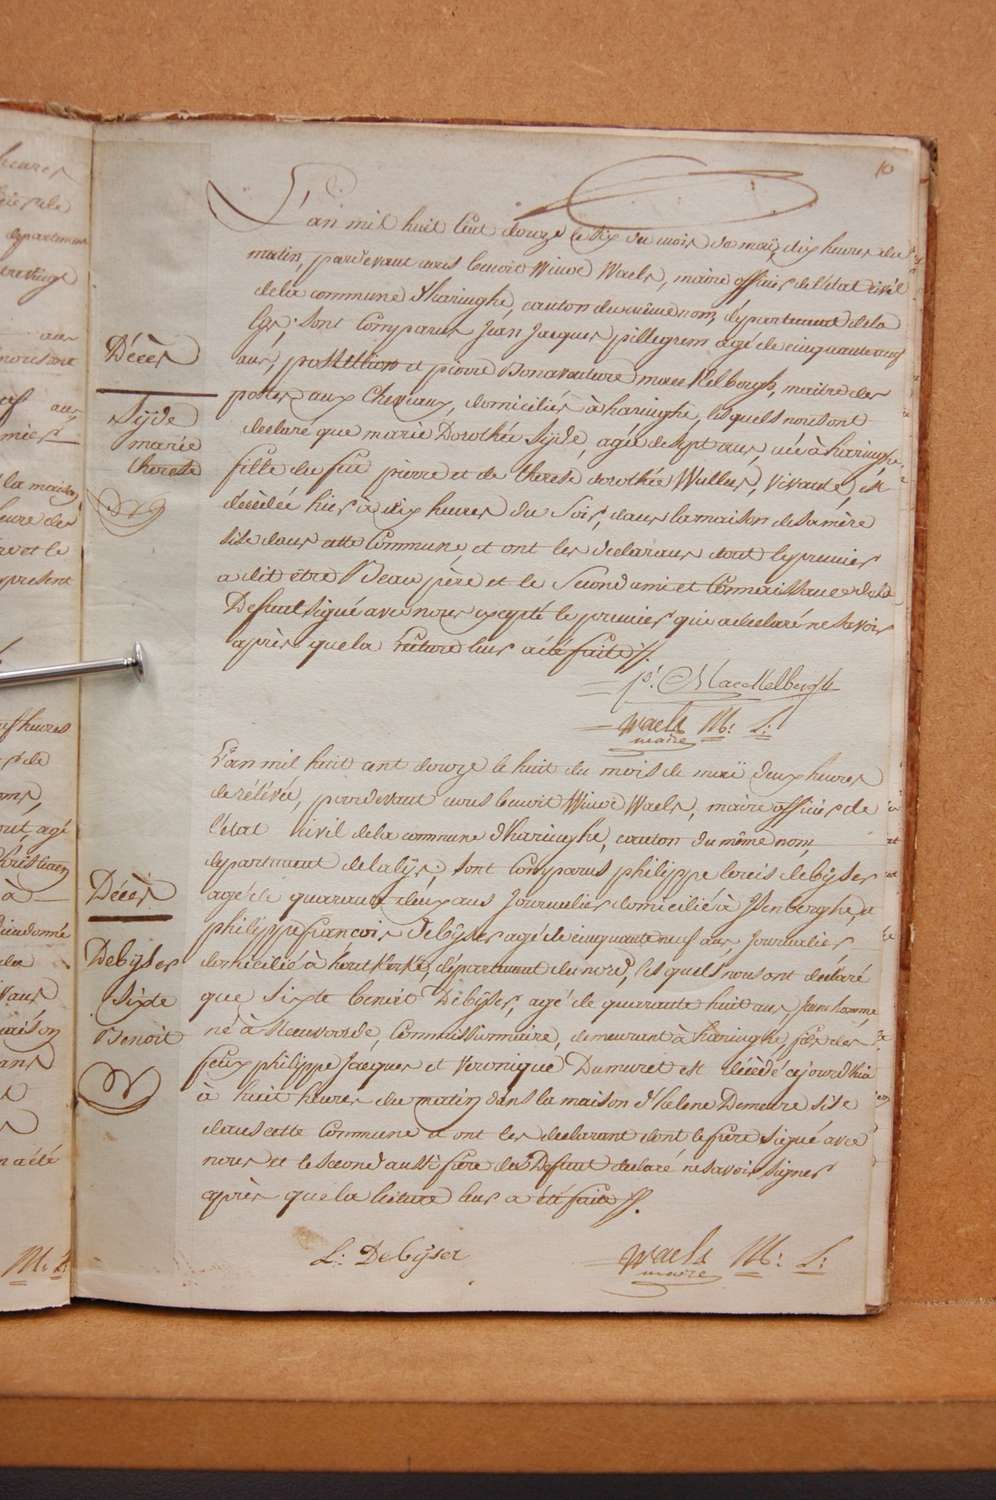 10
L'an mil huit cent douze le six du mois de maÿ, dix heures du
matin, pardevant nous benoit Winoc Waels, maire officier de l'état civil
de la commune d'haringhe, canton du même nom, département de la
Lys. sont comparus Jean Jacques pillegrem agé de cinquante neuf
ans, postillion et pierre Bonaventure mackelbergh, maitre des
postes aux Chevaux, domiciliés à haringhe, lesquels nous ont
declaré que marie Dorothée Sijde, agée de sept ans, née à haringhe,
fille de feu pierre et de therese dorothée Wullus, vivante, est
décédée hier à dix heures du soir, dans la maison de sa mère
Décès
sise dans cette Commune, et ont les declarans dont le premier
a dit être Beau père et le second ami et Connaissance de la
Defunte signé avec nous excepté le premier qui a declaré ne savoir
après que la lecture leur a été faite //.
Sijde
marie
therese
p: Mackelbergh
Waels M: L:
maire
L'an mil huit cent douze le huit du mois de maÿ deux heures
de rélévée, pardevant nous benoit Winoc Waels, maire officier de
l'état civil de la commune d'haringhe, canton du même nom,
département de la lÿs, sont comparus philippe louis debÿser
agé de quarante deux ans Journalier domicilié à Isenberghe, et
philippe francois debÿser agé de cinquante neuf ans, Journalier
domicilié à houtkerke, département du nord, lesquels nous ont declaré
que Sixte benoit Debÿser, agé de quarante huit ans Jeune homme,
né à Roeusvorde, Commissionnaire, demeurant à haringhe, fils des
feux philippe Jacques et Veronique Dumuret est décédé ajourd'hui
à huit heures du matin dans la maison d'helene Demeire sise
dans cette Commune et ont les declarant dont le frère signé avec
nous et le second aussi frère du Defunt declaré ne savoir signer
après que la lecture leur a été faite //.
Décès
Debÿser
Sixte
Benoit
L: Debÿser
Waels M: L:
maire